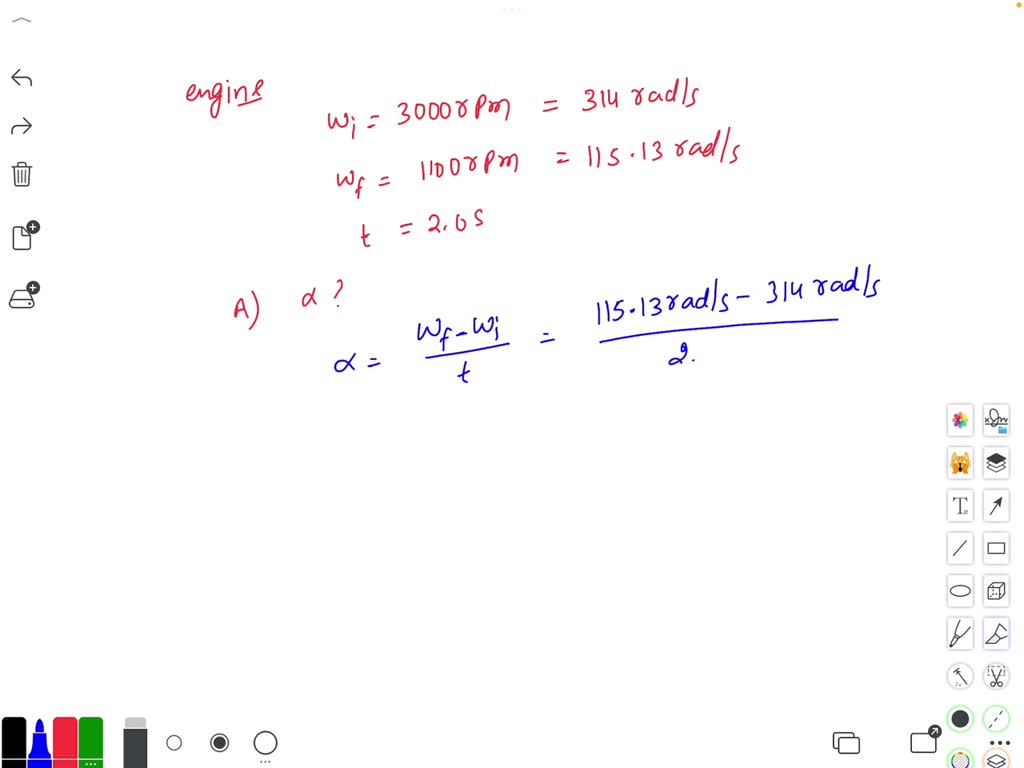 engine
ωi = 3000 rpm = 314 rad/s
ωf = 1100 rpm = 115.13 rad/s
t = 2.0s
A) α ?
α = ωf - ωi / t = 115.13 rad/s - 314 rad/s / 2.